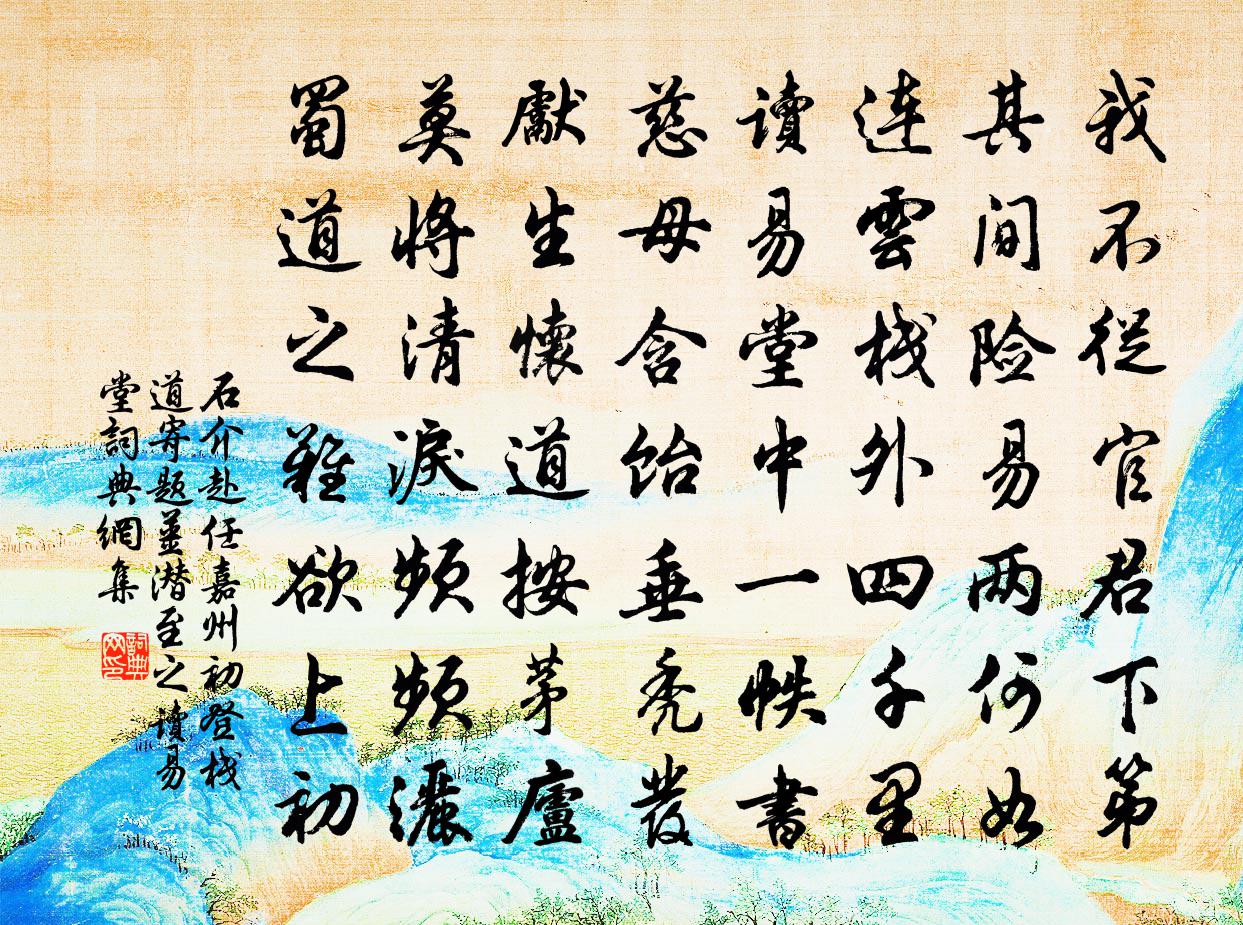 我不從官君下第
其間险易两何如
連雲棧外四千里
讀易堂中一帙書
慈母含飴垂秃發
獻生懷道按茅廬
莫將清淚頻頻灑
蜀道之難欲上初
石介赴任嘉州初登棧
道寄题姜潜至之讀易
堂詞典網集
詞典网印